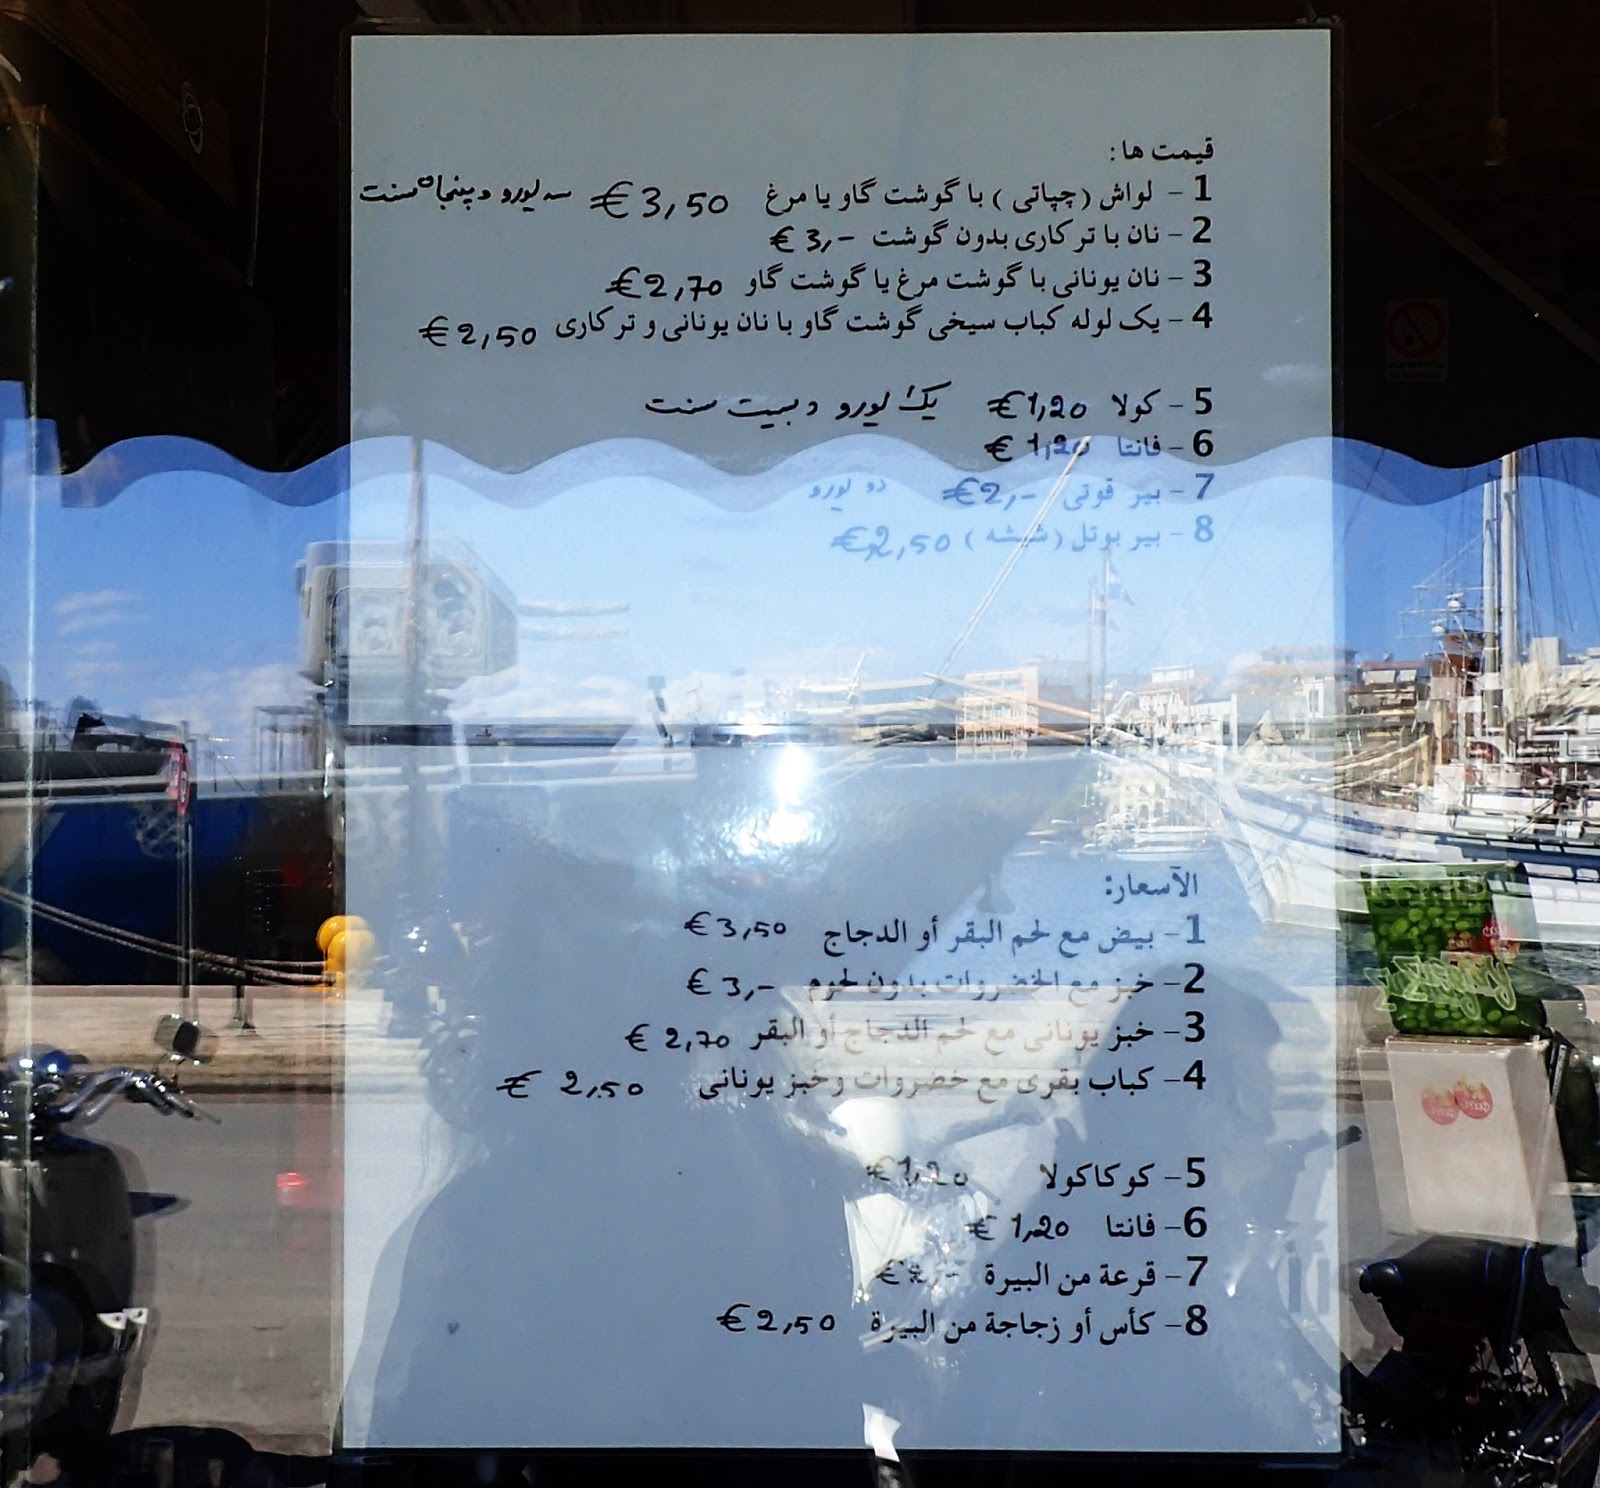 قیمت ها:
1 - لواش (چپاتی) با گوشت گاو یا مرغ €3,50 سه یورو و پنجاه سنت
2 - نان با ترکاری بدون گوشت €3,-
3 - نان یونانی با گوشت مرغ یا گوشت گاو €2,70
4 - یک لوله کباب سیخی گوشت گاو با نان یونانی و ترکاری €2,50
5 - کولا €1,20 یک یورو و بیست سنت
6 - فانتا €1,20
7 - بیر قوتی €2,- دو یورو
8 - بیر بوتل (شیشه) €2,50
الآسعار:
1- بيض مع لحم البقر أو الدجاج €3,50
2- خبز مع الخضروات بدون لحوم €3,-
3- خبز يونانى مع لحم الدجاج أو البقر €2,70
4- كباب بقرى مع خضروات وخبز يونانى €2,50
5- كوكاكولا €1,20
6- فانتا €1,20
7- قرعة من البيرة €2,-
8- كأس أو زجاجة من البيرة €2,50